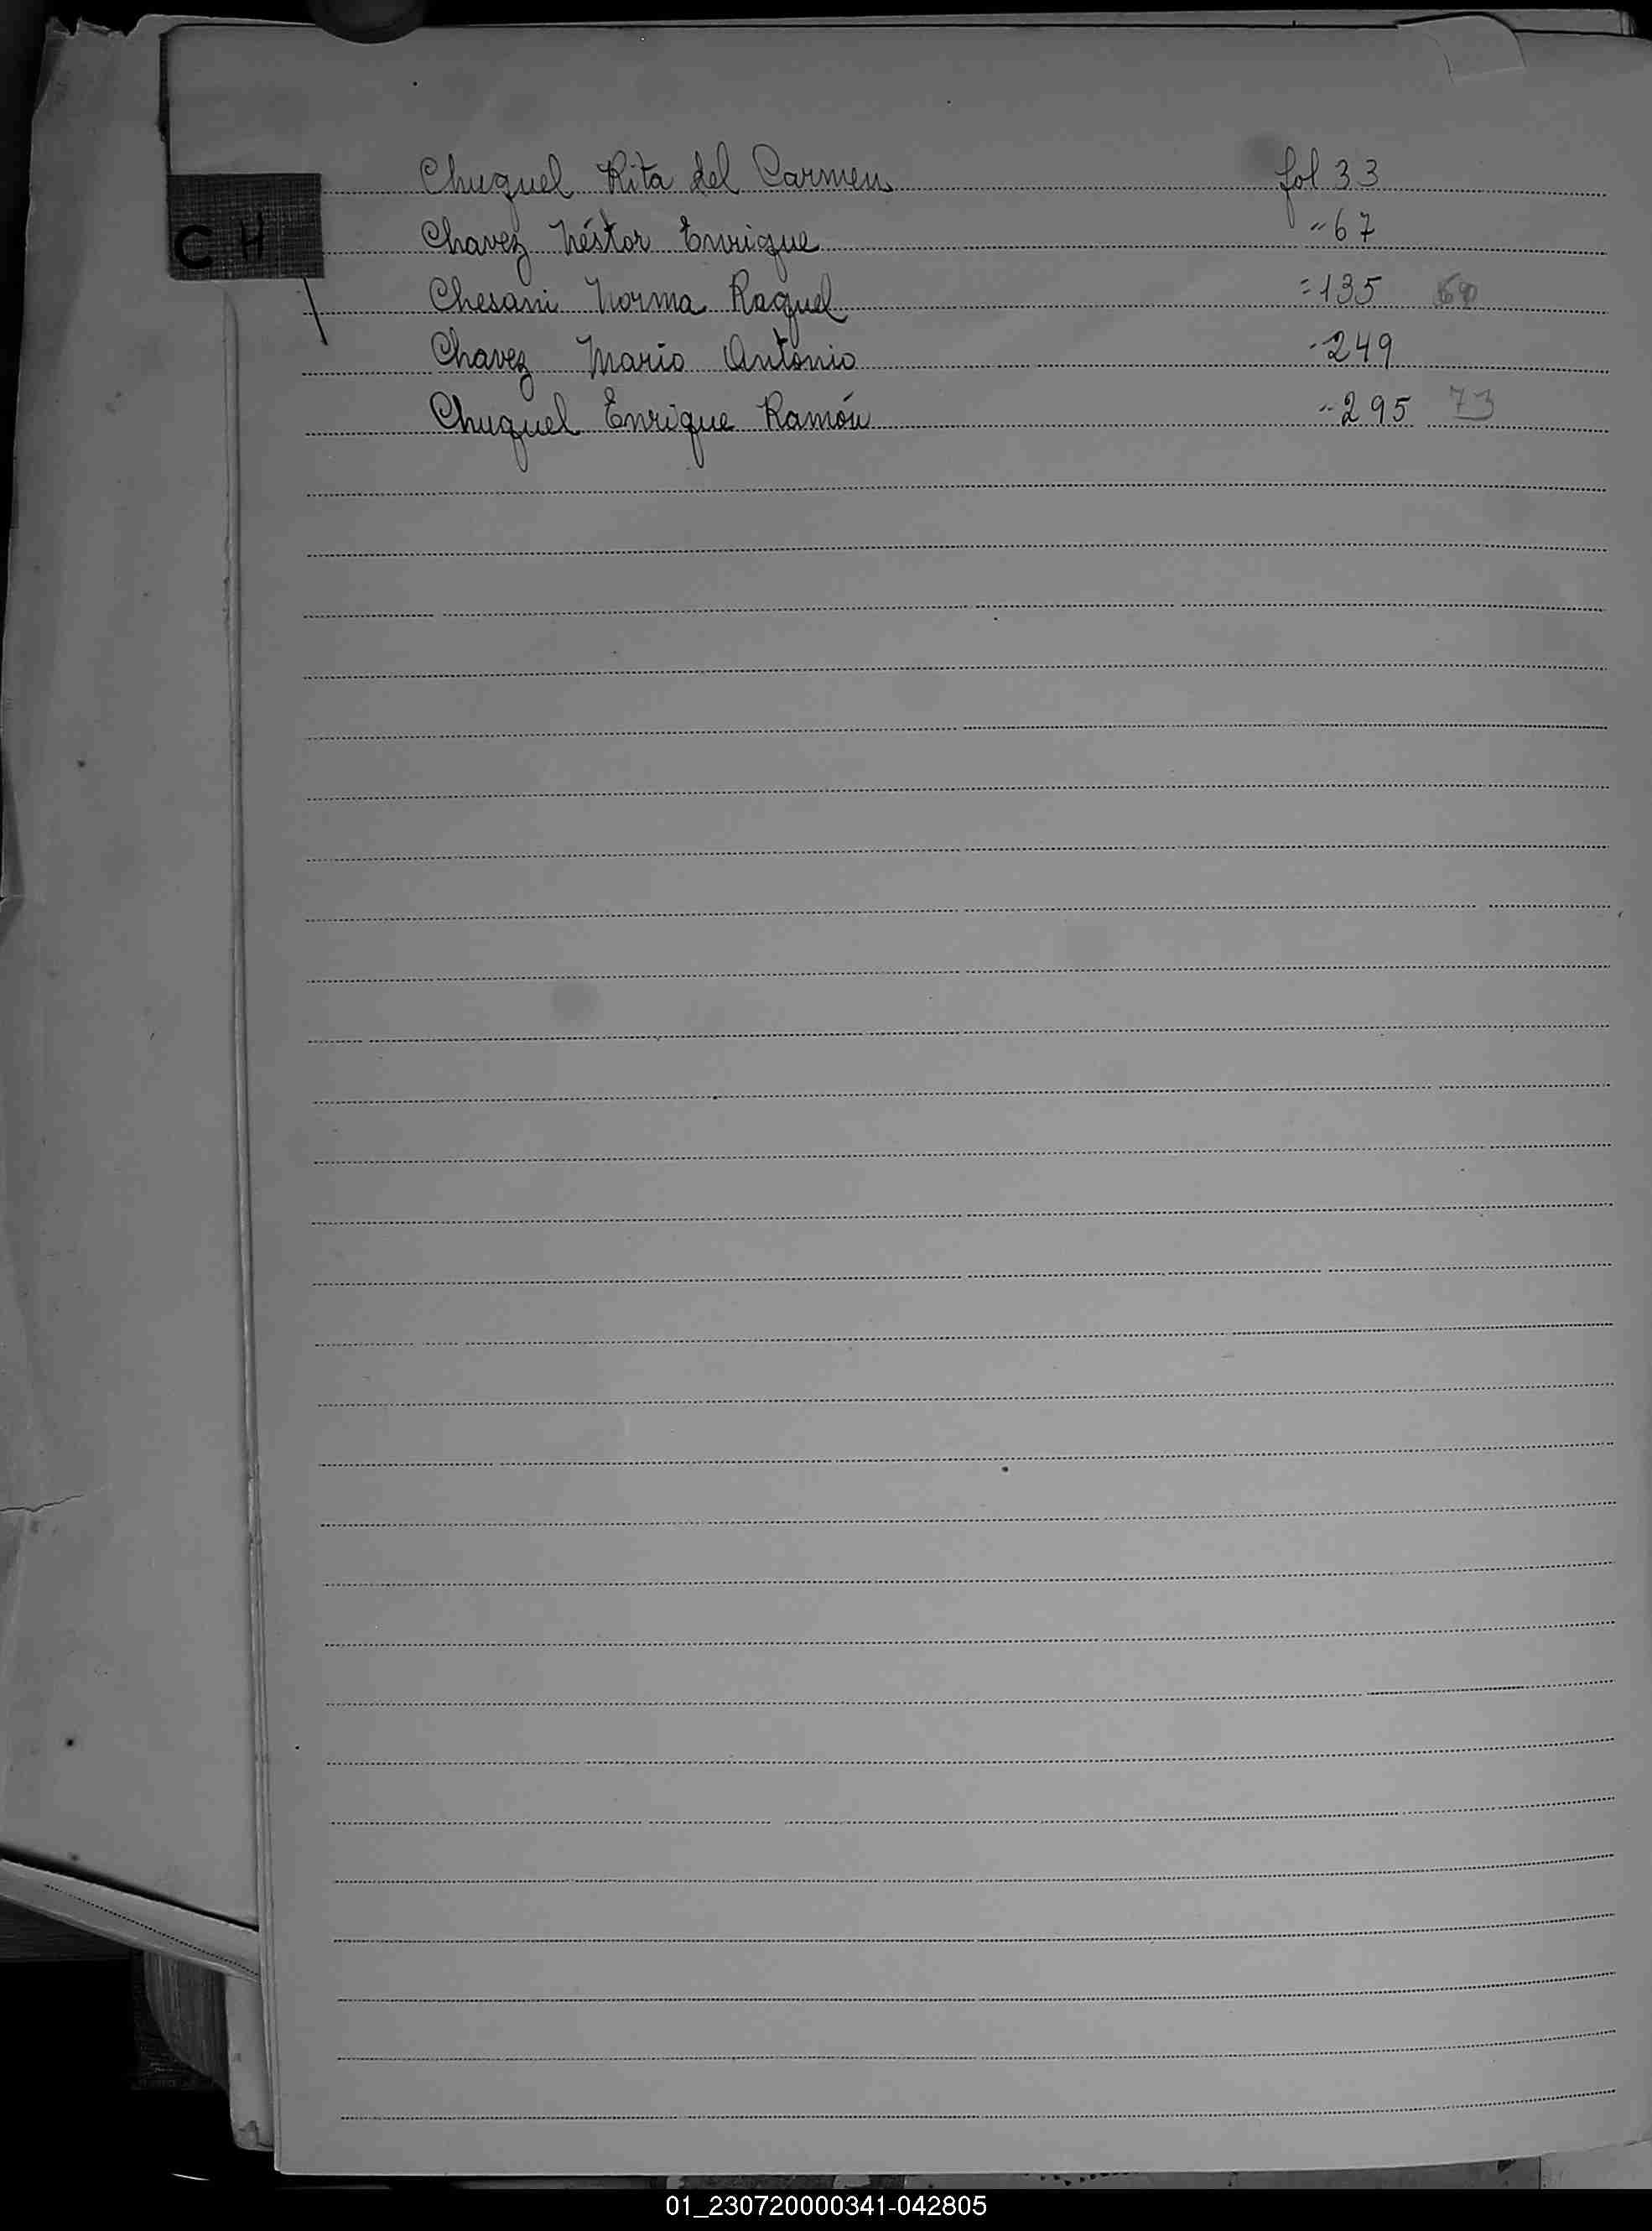 Chuquel Rita del Carmen fol 33
CH
Chavez Néstor Enrique " 67
Chesani Norma Raquel " 135
Chavez Mario Antonio " 249
Chuquel Enrique Ramón " 295 73
01_230720000341-042805